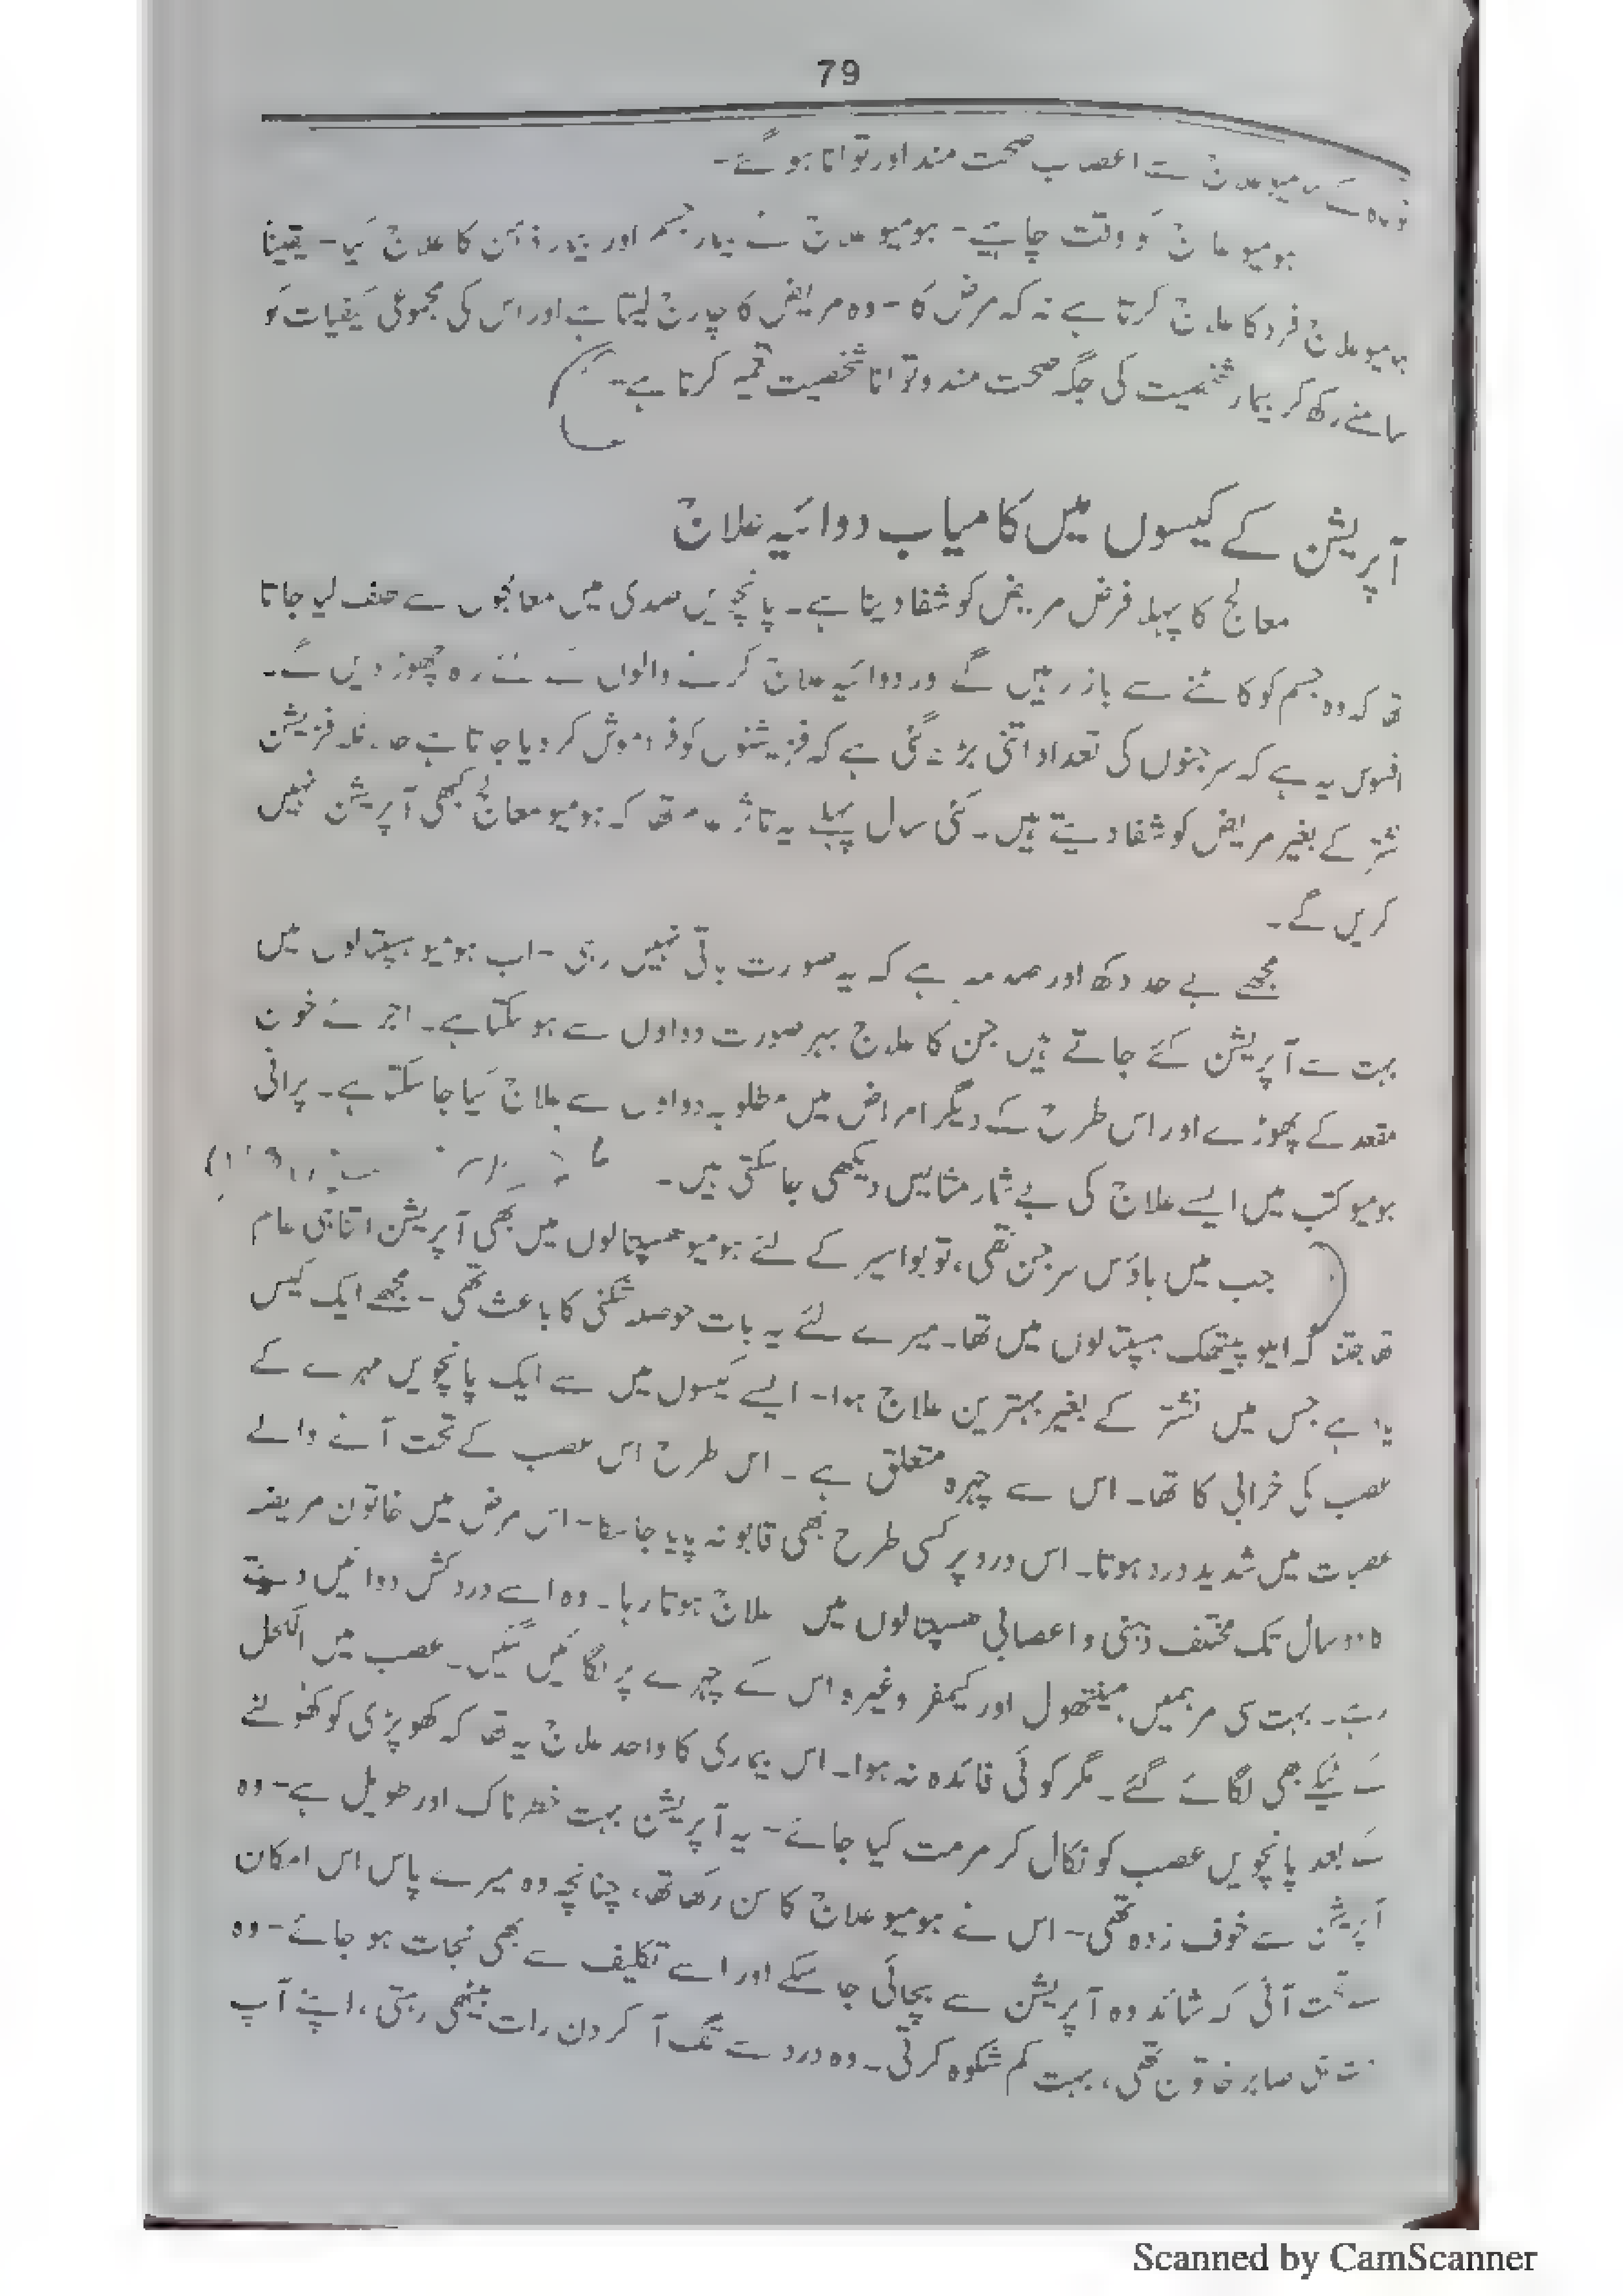 79
سے اعصاب صحت مند اور توانا ہو گئے۔
ہومیو علاج کو وقت چاہیے۔ ہومیو علاج نے بیمار جسم اور بیمار ذہن کا علاج کیا۔ یقیناً
ہومیو علاج فرد کا علاج کرتا ہے نہ کہ مرض کا۔ وہ مریض کا چارج لیتا ہے اور اس کی مجموعی کیفیات کو
سامنے رکھ کر بیمار شخصیت کی جگہ صحت مند و توانا شخصیت تعمیر کرتا ہے۔
آپریشن کے کیسوں میں کامیاب دوائیہ علاج
معالج کا پہلا فرض مریض کو شفا دینا ہے۔ پانچویں صدی میں معالجوں سے حلف لیا جاتا
تھا کہ وہ جسم کو کاٹنے سے باز رہیں گے اور دوائیہ علاج کرنے والوں کے لئے راہ چھوڑ دیں گے۔
افسوس یہ ہے کہ سرجنوں کی تعداد اتنی بڑھ گئی ہے کہ فزیشنوں کو فراموش کر دیا جاتا ہے حالانکہ فزیشن
نشتر کے بغیر مریض کو شفا دیتے ہیں۔ کئی سال پہلے یہ تاثر عام تھا کہ ہومیو معالج کبھی آپریشن نہیں
کریں گے۔
مجھے بے حد دکھ اور صدمہ ہے کہ یہ صورت باقی نہیں رہی۔ اب ہومیو ہسپتالوں میں
بہت سے آپریشن کئے جاتے ہیں جن کا علاج بہر صورت دواوں سے ہو سکتا ہے۔ اجرائے خون
مقعد کے پھوڑے اور اس طرح کے دیگر امراض میں مطلوبہ دواوں سے علاج کیا جا سکتا ہے۔ پرانی
ہومیو کتب میں ایسے علاج کی بے شمار مثالیں دیکھی جا سکتی ہیں۔
جب میں ہاؤس سرجن تھی، تو بواسیر کے لئے ہومیو ہسپتالوں میں بھی آپریشن اتنا ہی عام
تھا جتنا کہ ایلوپیتھک ہسپتالوں میں تھا۔ میرے لئے یہ بات حوصلہ شکنی کا باعث تھی۔ مجھے ایک کیس
یاد ہے جس میں نشتر کے بغیر بہترین علاج ہوا۔ ایسے کیسوں میں سے ایک پانچویں مہرے کے
عصب کی خرابی کا تھا۔ اس سے چہرہ متعلق ہے۔ اس طرح اس عصب کے تحت آنے والے
عصبات میں شدید درد ہوتا۔ اس درد پر کسی طرح بھی قابو نہ پایا جا سکا۔ اس مرض میں خاتون مریضہ
کا دو سال تک مختلف ذہنی و اعصابی ہسپتالوں میں علاج ہوتا رہا۔ وہ اسے درد کش دوائیں دیتے
رہے۔ بہت سی مرہمیں مینتھول اور کیمفر وغیرہ اس کے چہرے پر لگائیں گئیں۔ عصب میں الکحل
کے ٹیکے بھی لگائے گئے۔ مگر کوئی فائدہ نہ ہوا۔ اس بیماری کا واحد علاج یہ تھا کہ کھوپڑی کو کھولنے
کے بعد پانچویں عصب کو نکال کر مرمت کیا جائے۔ یہ آپریشن بہت خطرناک اور طویل ہے۔ وہ
آپریشن سے خوف زدہ تھی۔ اس نے ہومیو علاج کا سن رکھا تھا، چنانچہ وہ میرے پاس اس امکان
کے تحت آئی کہ شائد وہ آپریشن سے بچائی جا سکے اور اسے تکلیف سے بھی نجات ہو جائے۔ وہ
صابر خاتون تھی، بہت کم شکوہ کرتی۔ وہ درد سے تنگ آ کر دن رات بیٹھی رہتی، اپنے آپ
Scanned by CamScanner